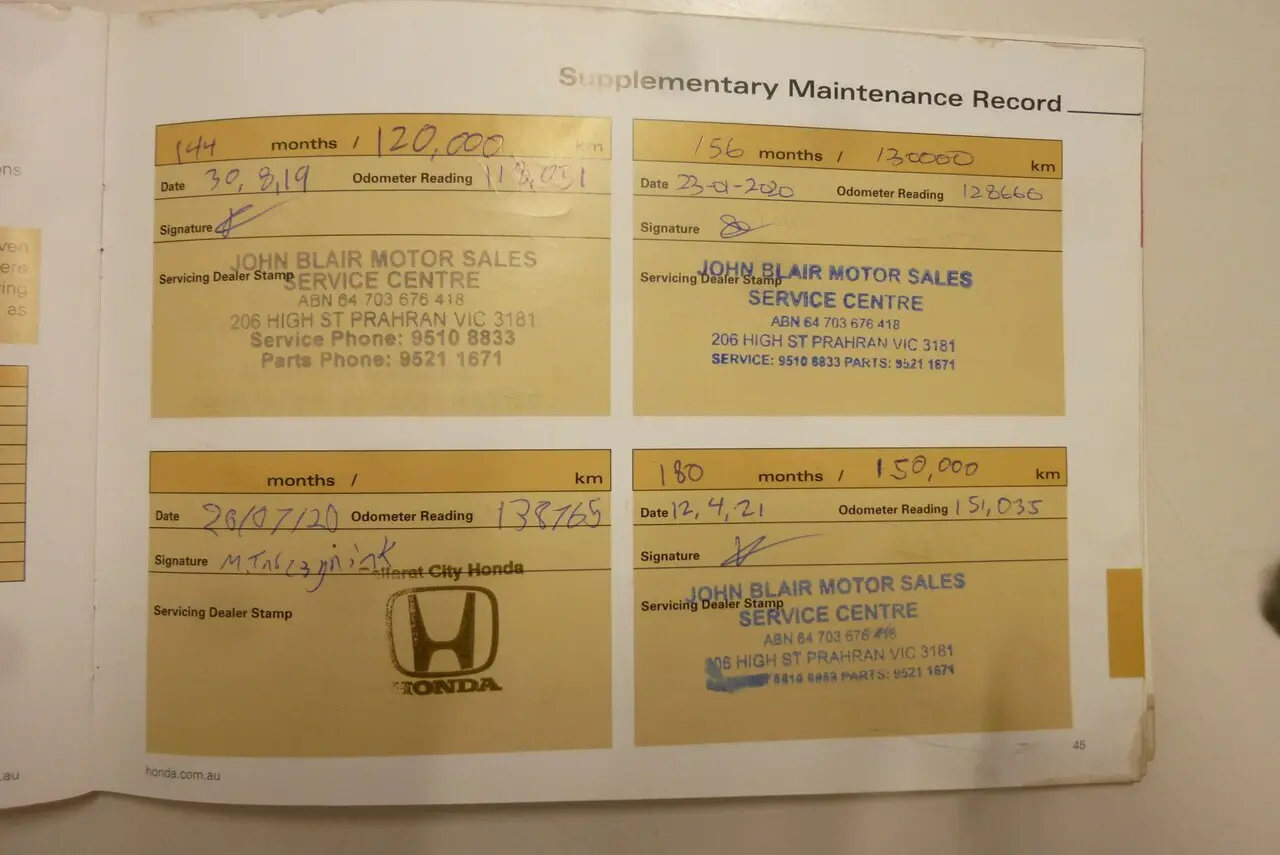 Supplementary Maintenance Record
144 months / 120,000 km
Date 30,8,19 Odometer Reading 118,031
Signature
Servicing Dealer Stamp
JOHN BLAIR MOTOR SALES
SERVICE CENTRE
ABN 64 703 676 418
206 HIGH ST PRAHRAN VIC 3181
Service Phone: 9510 8833
Parts Phone: 9521 1671
156 months / 130000 km
Date 23-01-2020 Odometer Reading 128660
Signature
Servicing Dealer Stamp
JOHN BLAIR MOTOR SALES
SERVICE CENTRE
ABN 64 703 676 418
206 HIGH ST PRAHRAN VIC 3181
SERVICE: 9510 8833 PARTS: 9521 1671
months / km
Date 28/07/20 Odometer Reading 138765
Signature
City Honda
Servicing Dealer Stamp
HONDA
180 months / 150,000 km
Date 12,4,21 Odometer Reading 151,035
Signature
Servicing Dealer Stamp
JOHN BLAIR MOTOR SALES
SERVICE CENTRE
ABN 64 703 676 418
206 HIGH ST PRAHRAN VIC 3181
PARTS: 9521 1671
honda.com.au
45
ons
ven
ere
ing
as
.au